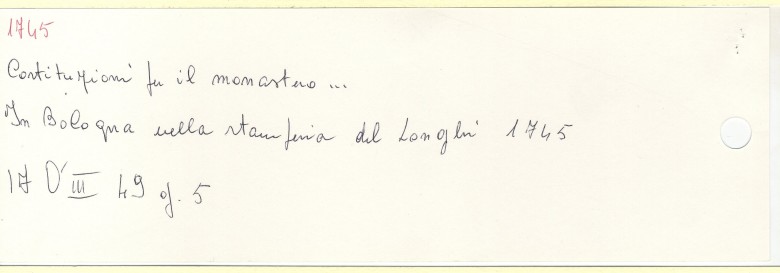 1745
Costituzioni per il monastero ...
In Bologna nella stamperia del Longhi 1745
17 D' III 49 op. 5